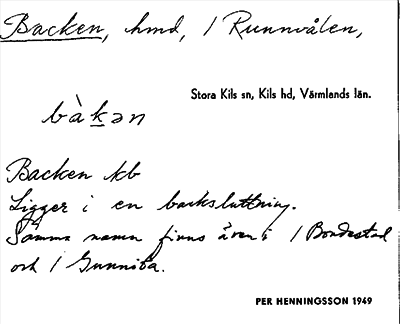 Backen, hmd, / Runnvålen,
Stora Kils sn, Kils hd, Värmlands län.
bàkən
Backen kb
Ligger i en backsluttning.
Samma namn finns även i / Bondestad
och / Gunnita.
PER HENNINGSSON 1949